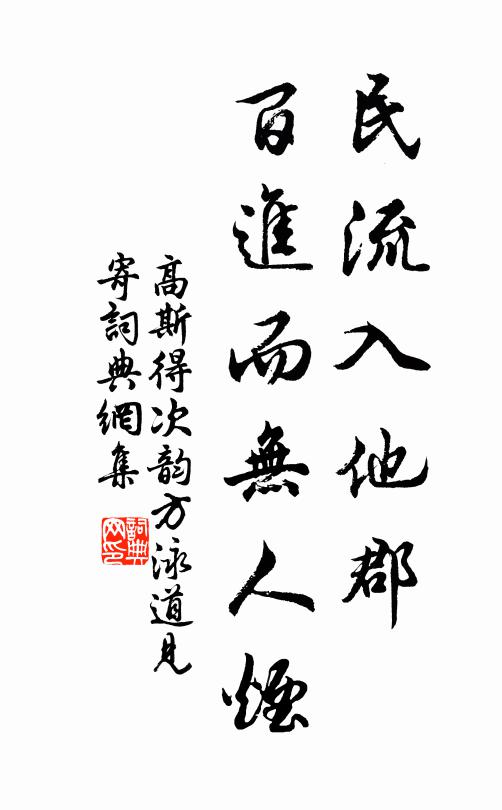 民流入他郡
百進而無人煙
高斯得次韵方泳道見
寄詞典網集
詞典网印